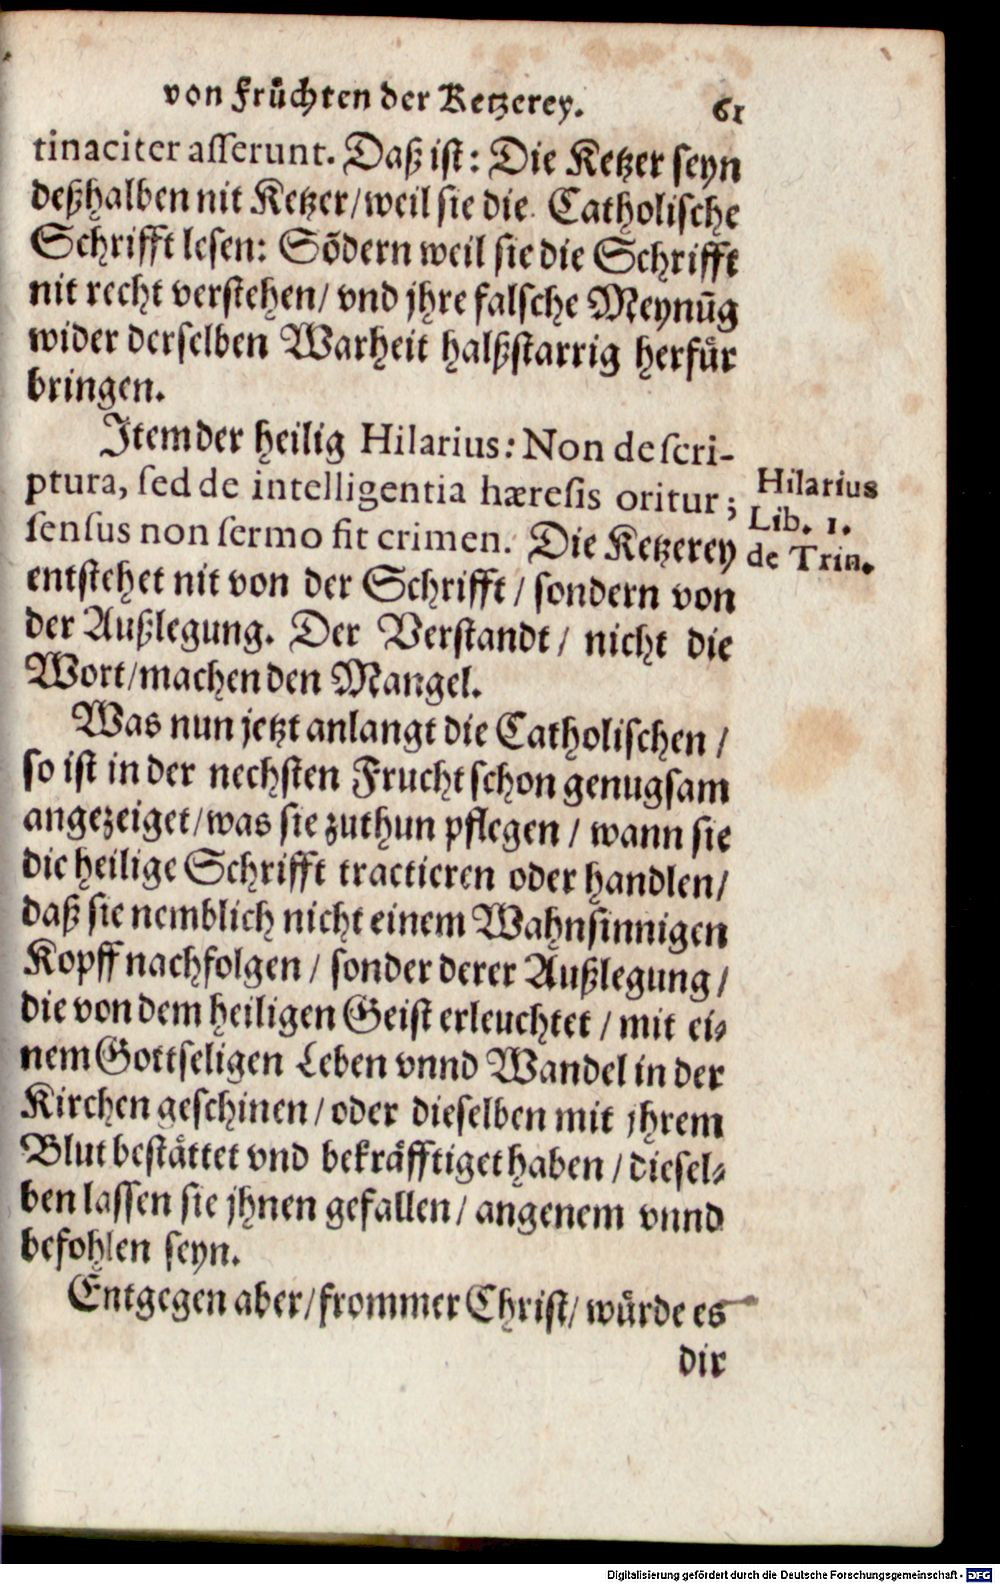 von Früchten der Ketzerey. 61
tinaciter asserunt. Daß ist: Die Ketzer seyn
deßhalben nit Ketzer/weil sie die Catholische
Schrifft lesen: Sõdern weil sie die Schrifft
nit recht verstehen/ vnd jhre falsche Meynūg
wider derselben Warheit halßstarrig herfür
bringen.
Item der heilig Hilarius: Non de scri-
ptura, sed de intelligentia hæresis oritur;
sensus non sermo fit crimen. Die Ketzerey
Hilarius
Lib. 1.
de Trin.
entstehet nit von der Schrifft/ sondern von
der Außlegung. Der Verstandt/ nicht die
Wort/machen den Mangel.
Was nun jetzt anlangt die Catholischen/
so ist in der nechsten Frucht schon genugsam
angezeiget/was sie zuthun pflegen/ wann sie
die heilige Schrifft tractieren oder handlen/
daß sie nemblich nicht einem Wahnsinnigen
Kopff nachfolgen/ sonder derer Außlegung/
die von dem heiligen Geist erleuchtet/ mit ei-
nem Gottseligen Leben vnnd Wandel in der
Kirchen geschinen/oder dieselben mit jhrem
Blut bestättet vnd bekräfftiget haben/diesel-
ben lassen sie jhnen gefallen/ angenem vnnd
befohlen seyn.
Entgegen aber/frommer Christ/ würde es
dir
Digitalisierung gefördert durch die Deutsche Forschungsgemeinschaft - DFG